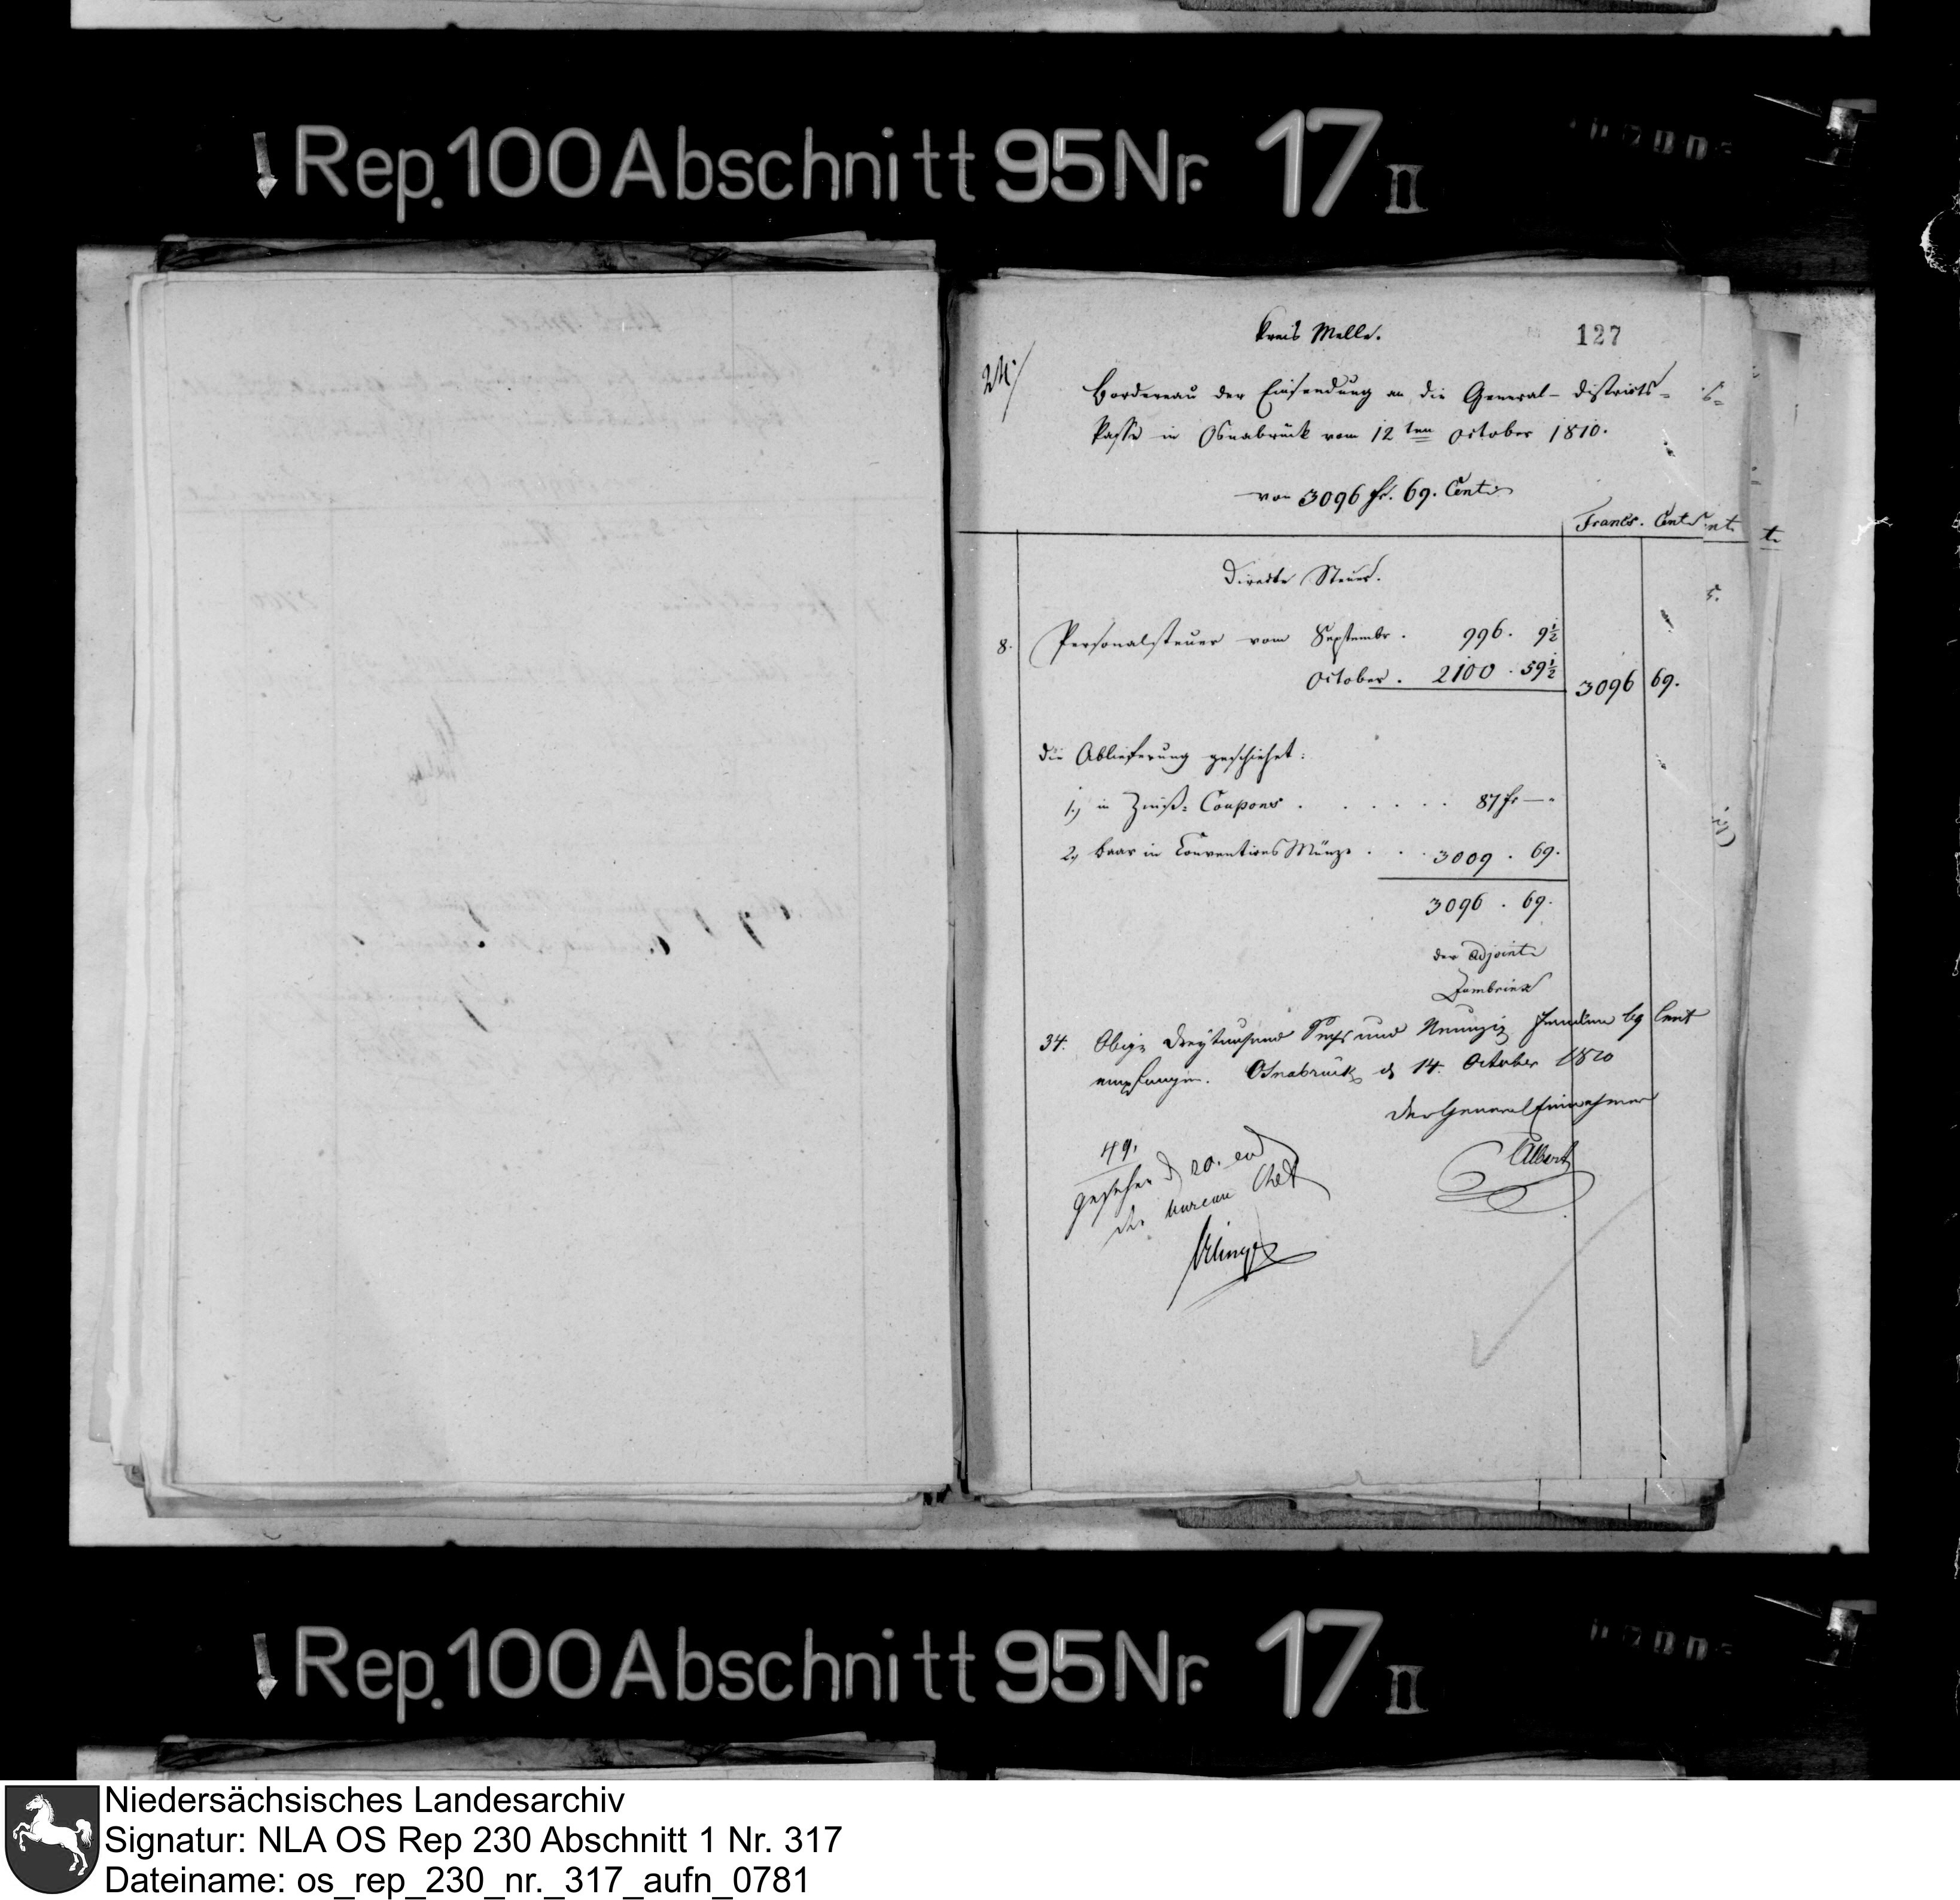 Rep. 100 Abschnitt 95 Nr. 17 II
Kreis Melle.
127
24.
Bordereau der Einsendung an die General-Districts-
Kasse in Osnabrück vom 12ten October 1810.
von 3096 fr. 69. Cent.
Francs. Cent.
Directe Steuer.
8. Personalsteuer vom Septembr. 996. 9½
October. 2100. 59½ 3096 69.
Die Ablieferung geschiehet:
1.) in Zins-Coupons . . . . . 87 fr —.
2.) baar in Conventions Münze . . 3009 . 69.
3096 . 69.
der Adjoint
34. Obige Dreytausend Sechs und Neunzig Franken 69 Cent
empfangen. Osnabrück d 14. October 1810
Der General Einnehmer
Albert
49.
gesehen d 20. eod
der bureau Chef
Rep. 100 Abschnitt 95 Nr. 17 II
Niedersächsisches Landesarchiv
Signatur: NLA OS Rep 230 Abschnitt 1 Nr. 317
Dateiname: os_rep_230_nr._317_aufn_0781